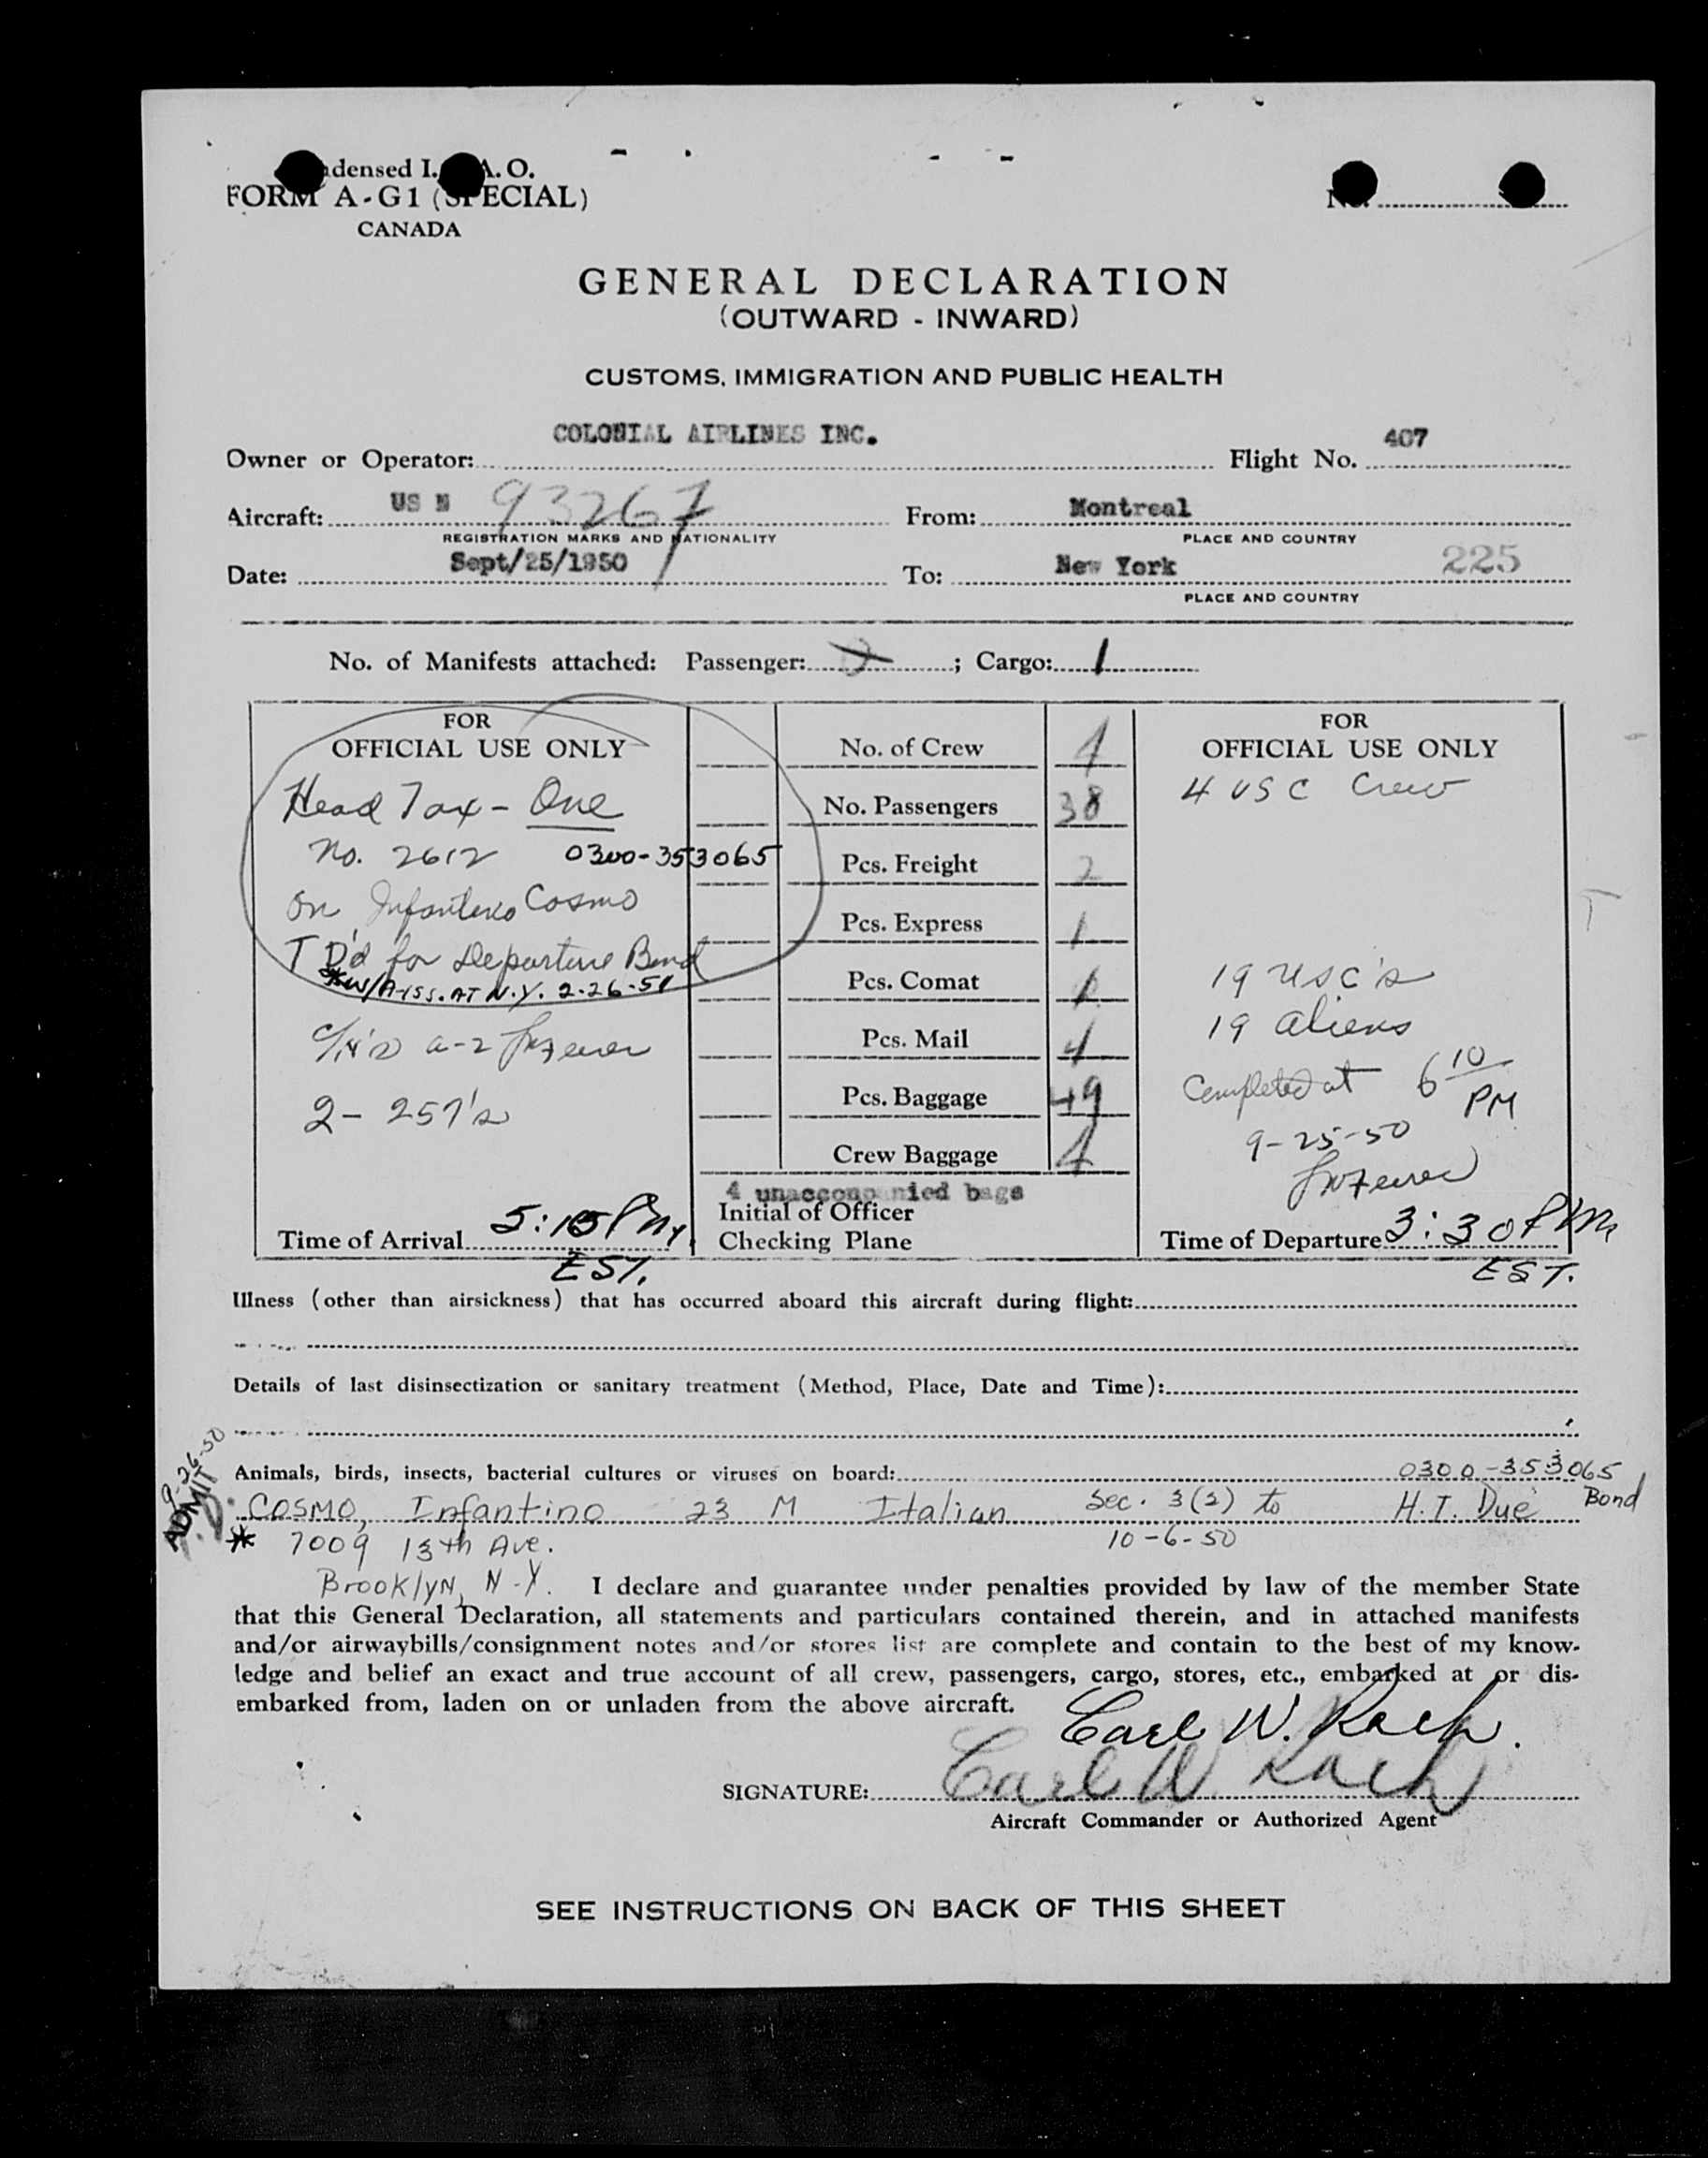 densed I. A.O.
FORM A-G1 (SPECIAL)
CANADA
No.
GENERAL DECLARATION
(OUTWARD - INWARD)
CUSTOMS, IMMIGRATION AND PUBLIC HEALTH
Owner or Operator: COLONIAL AIRLINES INC. Flight No. 407
Aircraft: US N 93267 From: Montreal
REGISTRATION MARKS AND NATIONALITY PLACE AND COUNTRY
Date: Sept/25/1950 To: New York 225
PLACE AND COUNTRY
No. of Manifests attached: Passenger: ; Cargo: 1
FOR
OFFICIAL USE ONLY
Head Tax - One
No. 2612 0300-353065
on Infantino Cosmo
T D'd for Departure Bond
*W/A-ISS. AT N.Y. 2-26-51
a-2
2 - 257's
Time of Arrival 5:15 PM.
EST.
No. of Crew 4
No. Passengers 38
Pcs. Freight 2
Pcs. Express 1
Pcs. Comat 1
Pcs. Mail 4
Pcs. Baggage 49
Crew Baggage 4
4 unaccompanied bags
Initial of Officer
Checking Plane
FOR
OFFICIAL USE ONLY
4 USC Crew
19 USC's
19 aliens
Completed at 6 10 PM
9-25-50
Time of Departure 3:30 PM
EST.
Illness (other than airsickness) that has occurred aboard this aircraft during flight:
Details of last disinsectization or sanitary treatment (Method, Place, Date and Time):
Animals, birds, insects, bacterial cultures or viruses on board: 0300-353065
9-26-50
ADMIT
COSMO, Infantino 23 M Italian Sec. 3(2) to H.T. Due Bond
* 7009 13th Ave. 10-6-50
Brooklyn, N.Y. I declare and guarantee under penalties provided by law of the member State
that this General Declaration, all statements and particulars contained therein, and in attached manifests
and/or airwaybills/consignment notes and/or stores list are complete and contain to the best of my know-
ledge and belief an exact and true account of all crew, passengers, cargo, stores, etc., embarked at or dis-
embarked from, laden on or unladen from the above aircraft.
Carl W. Koch.
SIGNATURE: Carl W Koch
Aircraft Commander or Authorized Agent
SEE INSTRUCTIONS ON BACK OF THIS SHEET